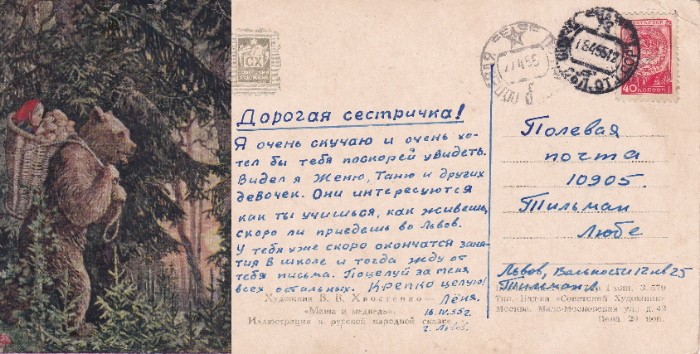 Дорогая сестричка!
Я очень скучаю и очень хо-
тел бы тебя поскорей увидеть.
Видел я Женю, Таню и других
девочек. Они интересуются
как ты учишься, как живешь,
скоро ли приедешь во Львов.
У тебя уже скоро окончатся заня-
тия в школе и тогда жду от
тебя письма. Поцелуй за меня
всех остальных. Крепко целую!
Лёня.
16.IV.55г.
г. Львов.
Художник В. В. Хвостенко
«Маша и медведь».
Иллюстрация к русской народной сказке
СХ
40 КОПЕЕК
Полевая
почта
10905.
Тильман
Любе
Львов, Вольности 12 кв 25
Тильман
З. 579
Тип. Изд-ва «Советский Художник»
Москва, Мало-Московская ул., д.
Цена 20 коп.